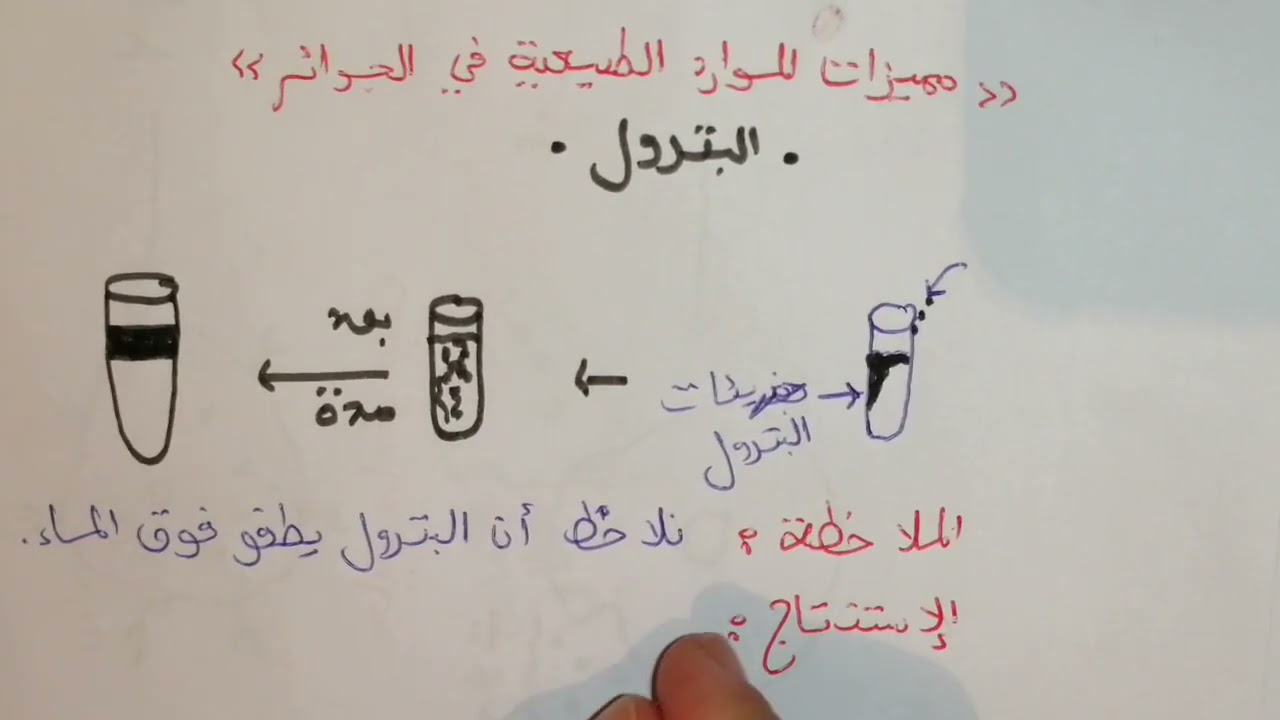 « مميزات الموارد الطبيعية في الجزائر »
• البترول •
بعد
مدة
البترول
الملاحظة : نلاحظ أن البترول يطفو فوق الماء.
الإستنتاج :